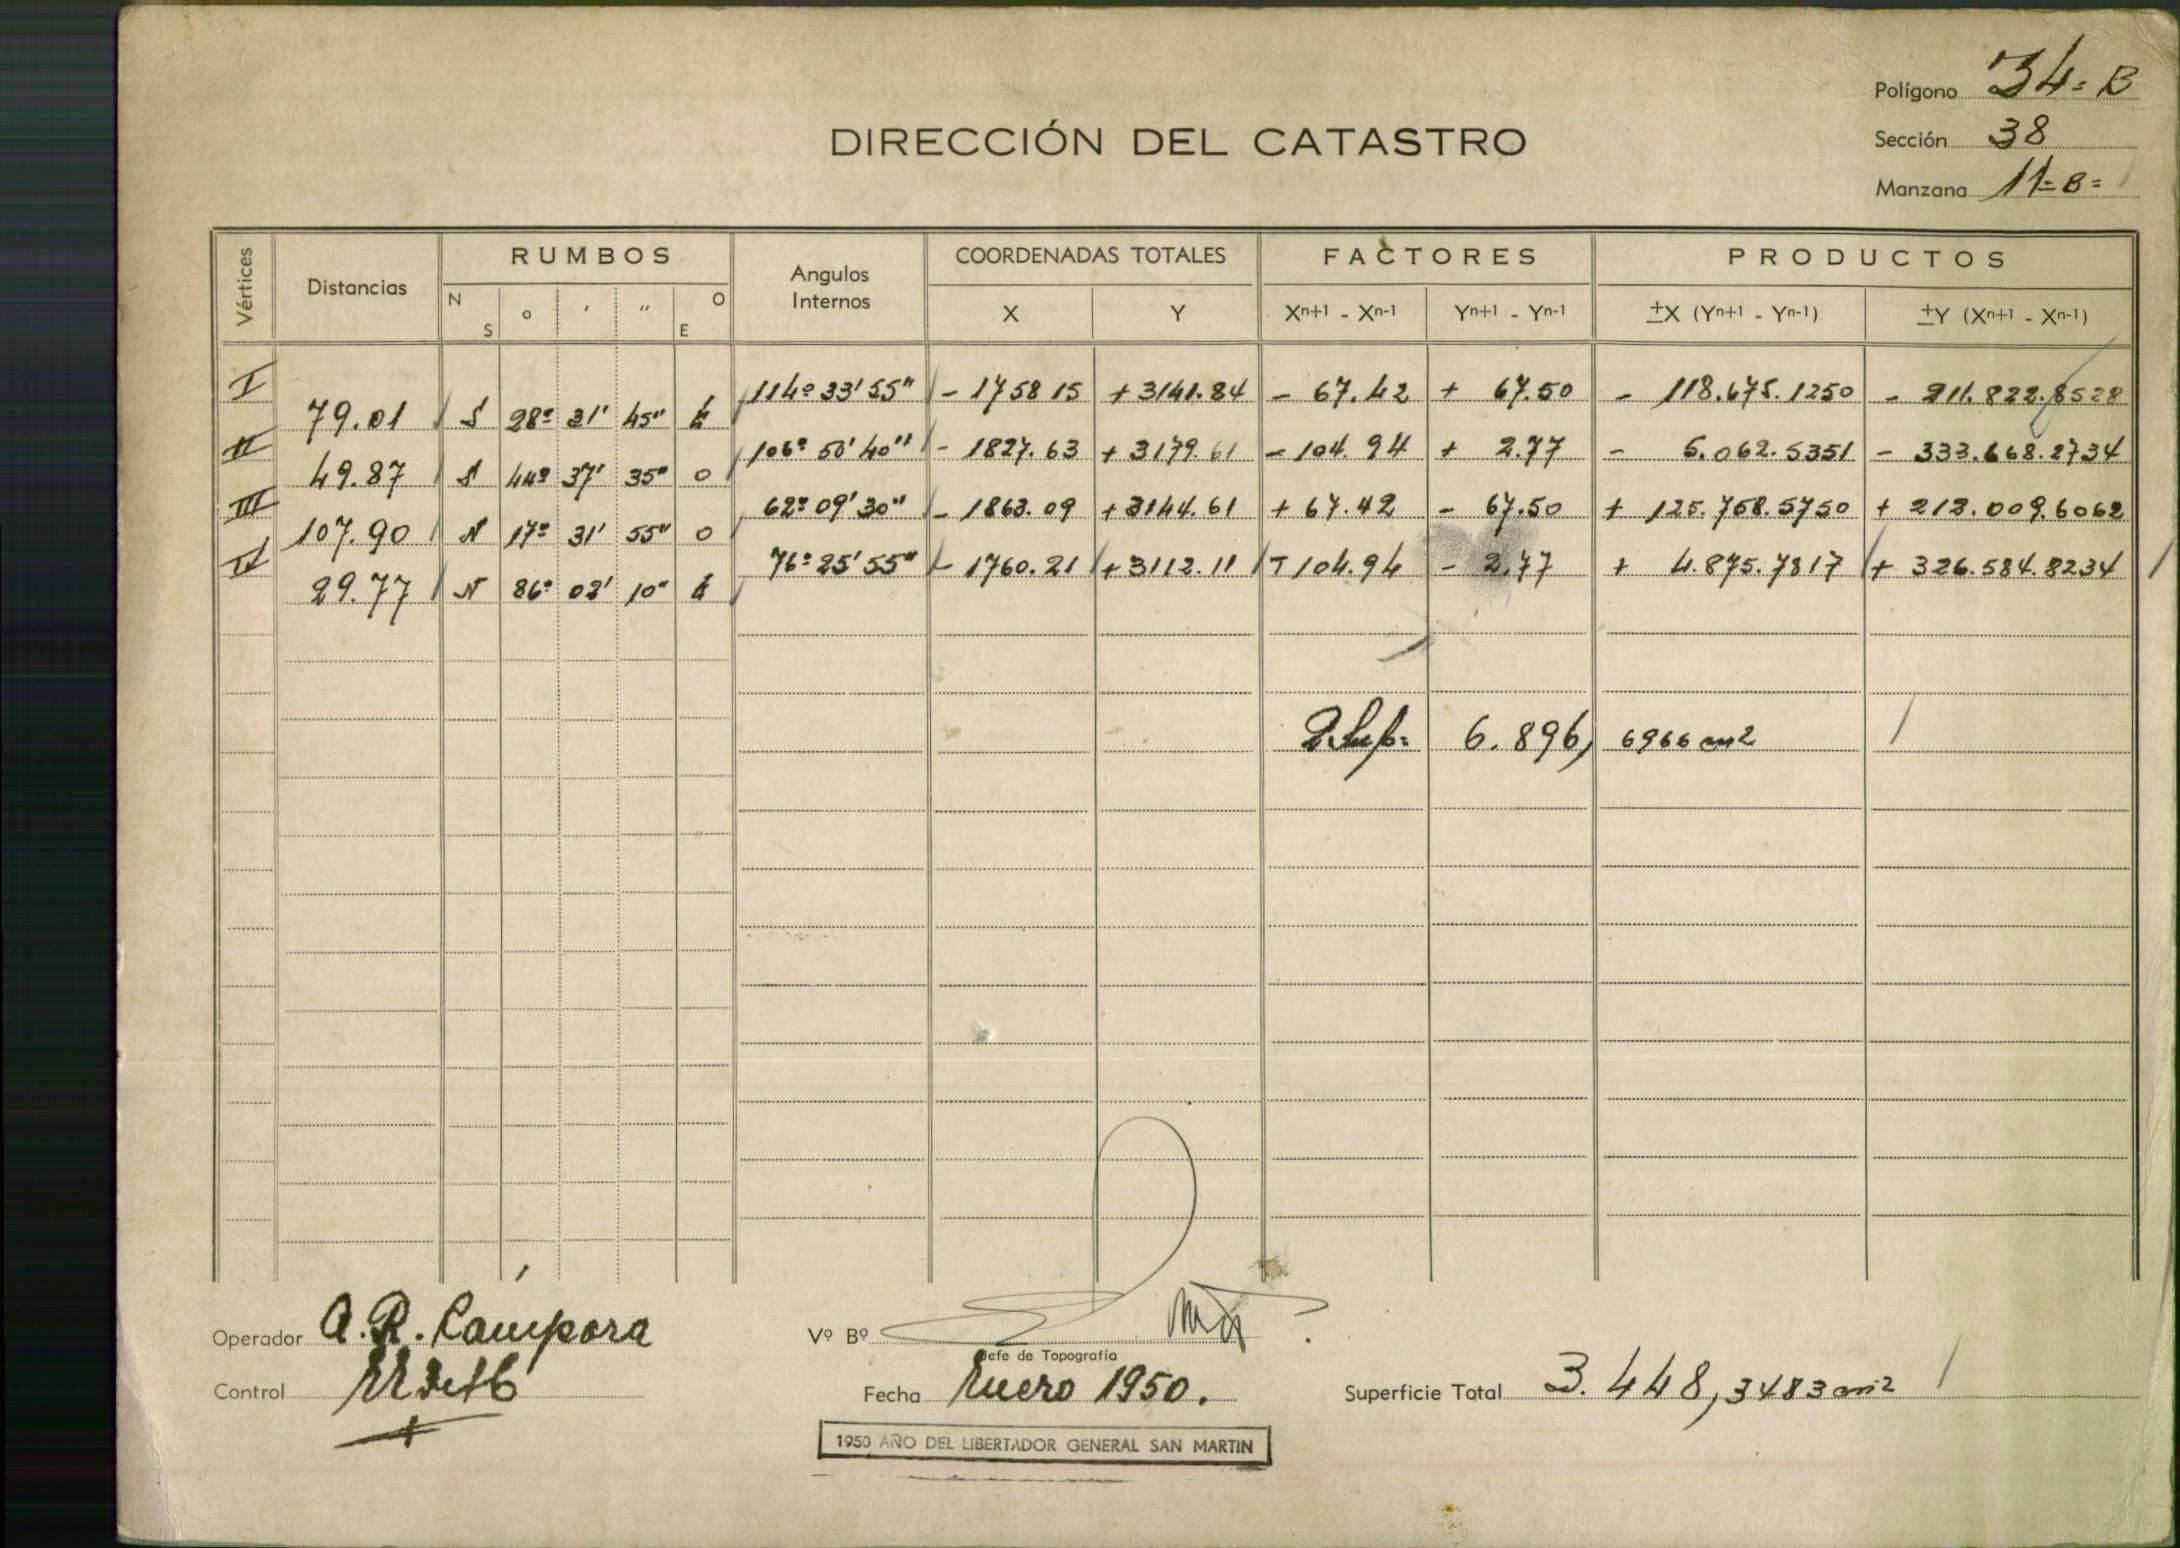 Polígono 34=B
DIRECCIÓN DEL CATASTRO
Sección 38
Manzana 11=B=
Vértices Distancias RUMBOS N S o ' " O E Angulos Internos COORDENADAS TOTALES X Y FACTORES Xn+1 - Xn-1 Yn+1 - Yn-1 PRODUCTOS ±X (Yn+1 - Yn-1) ±Y (Xn+1 - Xn-1)
I 114º 33' 55" - 1758 15 + 3141.84 - 67.42 + 67.50 - 118.675.1250 - 211.822.8528
79.01 S 28º 31' 45" E
II 106º 50' 40" - 1827.63 + 3179.61 - 104.94 + 2.77 - 5.062.5351 - 333.668.2734
49.87 S 44º 37' 35" O
III 62º 09' 30" - 1863.09 + 3144.61 + 67.42 - 67.50 + 125.758.5750 + 212.009.6062
107.90 N 17º 31' 55" O
IV 76º 25' 55" - 1760.21 + 3112.11 + 104.94 - 2.77 + 4.875.7817 + 326.584.8234
29.77 N 86º 02' 10" E
2 Sup= 6.896, 6966 cm2
Operador A. R. Cámpora
Vº Bº
Jefe de Topografía
Control
Fecha Enero 1950.
Superficie Total 3.448,3483 cm2
1950 AÑO DEL LIBERTADOR GENERAL SAN MARTIN